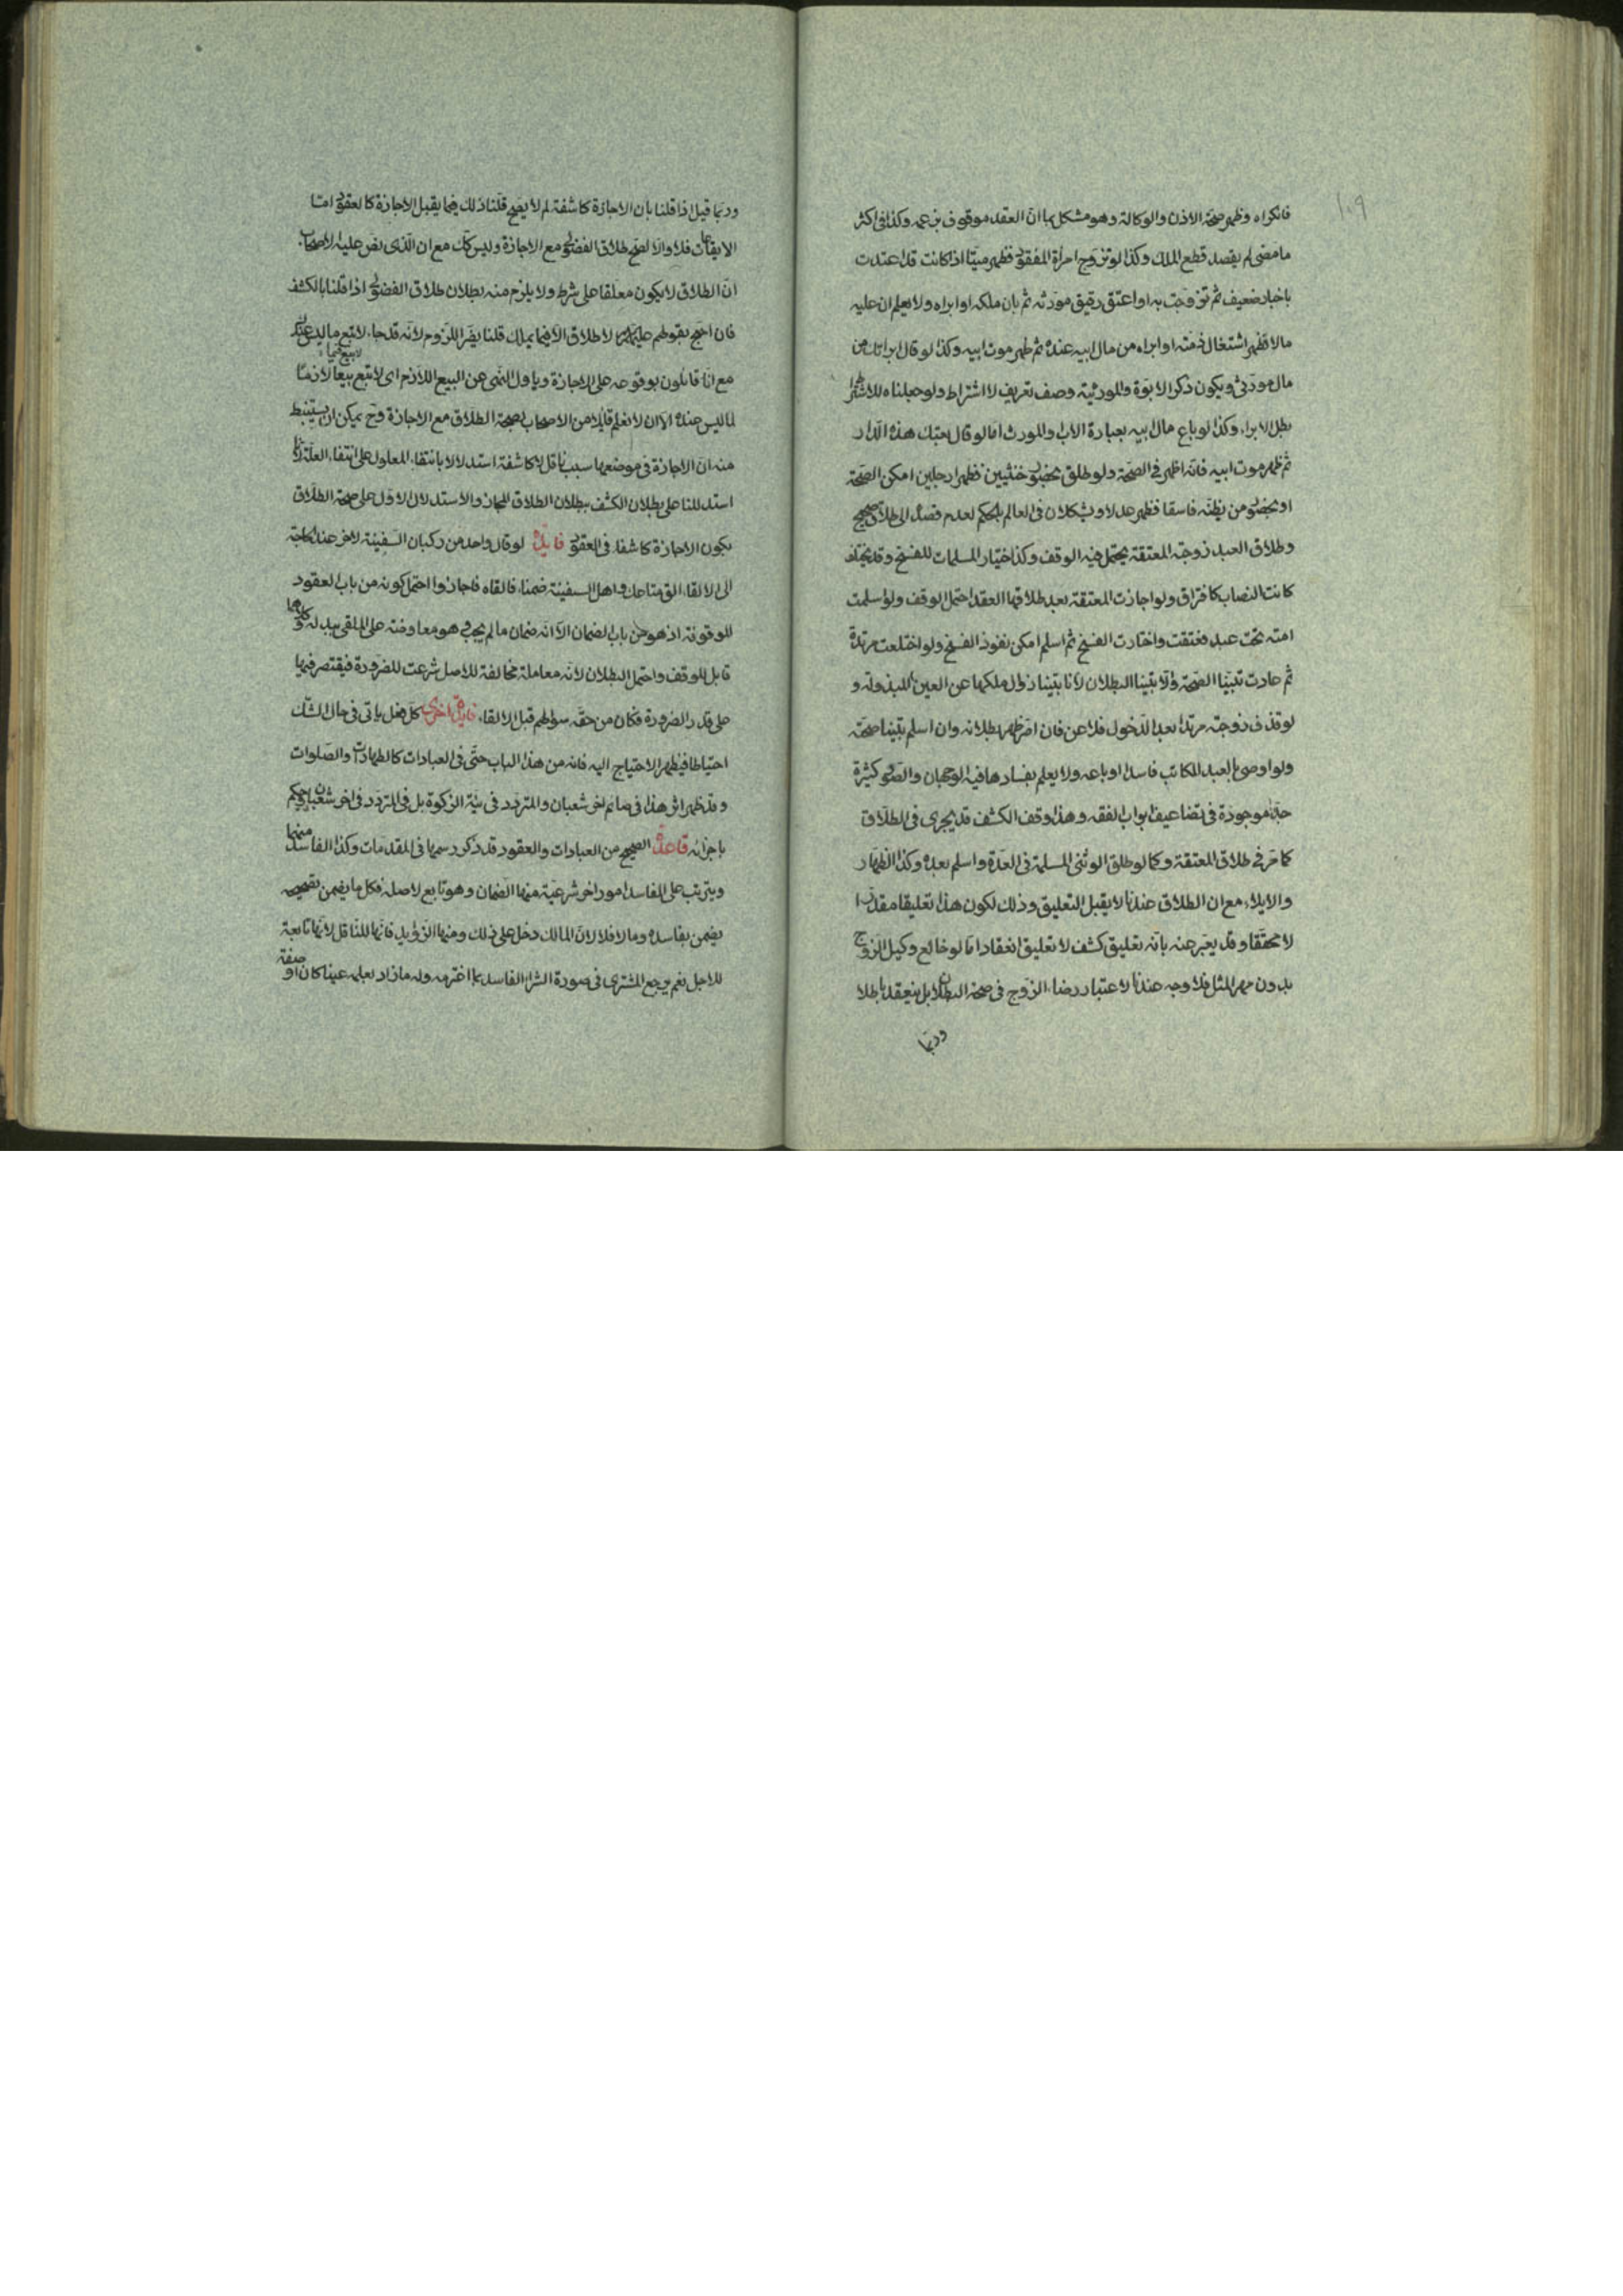 ١٠٩
فانكراه وظهر صحة الاذن والوكالة وهو مشكل بما انّ العقد موقوف بزعمه وكذا فى اكثر
ما مضى لم يقصد قطع الملك وكذا لو تزوج امرأة المفقود فظهر ميتا اذا كانت قد اعتدت
باخبار ضعيف ثم تزوجت به او اعتق رقيق مورثه ثم بان ملكه او ابراه ولا يعلم ان عليه
مالا فظهر اشتغال ذمته او ابراه من مال ابيه عنده ثم ظهر موت ابيه وكذا لو قال ابراتك من
مال مورثى ويكون ذكر الابوة والمورثية وصف تعريف لا اشتراط ولو جعلناه للاشتراط
بطل الابراء وكذا لو باع مال ابيه بعبارة الاب والمورث اما لو قال بعتك هذه الدار
ثم ظهر موت ابيه فانه اظهر فى الصحة ولو طلق بحضور خنثيين فظهرا رجلين امكن الصحة
او بحضور من يظنه فاسقا فظهر عدلا ويشكلان فى العالم بالحكم لعدم قصده الى طلاق صحيح
وطلاق العبد زوجته المعتقة يحتمل فيه الوقف وكذا اختيار المسلمات للفسخ وقد تخلف
كانت النصاب كافتراق ولو اجازت المعتقة بعد طلاقها العقد احتمل الوقف ولو اسلمت
امته تحت عبد فعتقت واختارت الفسخ ثم اسلم امكن نفوذ الفسخ ولو اختلعت مرتدة
ثم عادت تبينا الصحة والا تبينا البطلان لانا تبينا زوال ملكها عن العين المبذولة و
لو قذف زوجته مرتدا بعد الدخول فلاعن فان اصر ظهر بطلانه وان اسلم تبينا صحته
ولو اوصى بالعبد المكاتب فاسدا او باعه ولا يعلم بفسادها فيه الوجهان والصور كثيرة
جدا موجودة فى تضاعيف ابواب الفقه وهذا وقف الكشف قد يجرى فى الطلاق
كما مر فى طلاق المعتقة وكما لو طلق الوثنى المسلمة فى العدة واسلم بعده وكذا الظهار
والايلاء مع ان الطلاق عندنا لا يقبل التعليق وذلك لكون هذا تعليقا مقدرا
لا محققا وقد يعبر عنه بانه تعليق كشف لا تعليق انعقاد اما لو خالع وكيل الزوج
بدون مهر المثل فلا وجه عندنا لاعتبار رضاء الزوج فى صحة البطلان بل ينعقد باطلا
وربما
وربما قيل اذا قلنا بان الاجازة كاشفة لم لا يصح قلنا ذلك فيما يقبل الاجازة كالعقود امّا
الايقاعات فلا والا لصح طلاق الفضولى مع الاجازة وليس كك مع ان الذى نص عليه الاصحاب
انّ الطلاق لا يكون معلقا على شرط ولا يلزم منه بطلان طلاق الفضولى اذا قلنا بالكشف
فان احتج بقولهم عليهم السلم لا طلاق الا فيما يملك قلنا يضر اللزوم لانه قد جاء لا تبع ما ليس عندك
لا بيع فيما
مع انا قائلون بوقوعه على الاجازة وياول النهى عن البيع اللازم اى لا تبع بيعا لازما
لما ليس عندك الا ان لا نعلم قايلا من الاصحاب بصحة الطلاق مع الاجازة وح يمكن ان يستنبط
منه ان الاجازة فى موضعها سبب ناقل لا كاشفة استدلالا بانتفاء المعلول على انتفاء العلة لانا
استدللنا على بطلان الكشف ببطلان الطلاق المجاز والاستدلال الاول على صحة الطلاق
بكون الاجازة كاشفة فى العقود فايدة لو قال واحد من ركبان السفينة لاخر عند الحاجة
الى الالقاء الق متاعك واهل السفينة ضمناء فالقاه فاجازوا احتمل كونه من باب العقود
الموقوفة اذ هو من باب الضمان الا انه ضمان ما لم يجب او هو معاوضة على الملقى ببدله وكلاهما
قابل للوقف واحتمل البطلان لانه معاملة مخالفة للاصل شرعت للضرورة فيقتصر فيها
على قدر الضرورة فكان من حقه سؤالهم قبل الالقاء فايدة اخرى كل فعل ياتى فى حال الشك
احتياطا فيظهر الاحتياج اليه فانه من هذا الباب حتى فى العبادات كالطهارات والصلوات
وقد ظهر اثر هذا فى صائم اخر شعبان والمتردد فى نية الزكوة بل فى المتردد فى اخر شعبان يحكم
باجزائه قاعدة الصحيح من العبادات والعقود قد ذكر رسمها فى المقدمات وكذا الفاسد منهما
ويترتب على الفاسد امور اخر شرعية منها الضمان وهو تابع لاصله فكل ما يضمن بصحيحه
يضمن بفاسده وما لا فلا لان المالك دخل على ذلك ومنها الزوايد فانها للناقل لانها تابعة
للاصل نعم يرجع المشترى فى صورة الشراء الفاسد بما اغترمه وله ما زاد بعلمه عينا كان او صفة